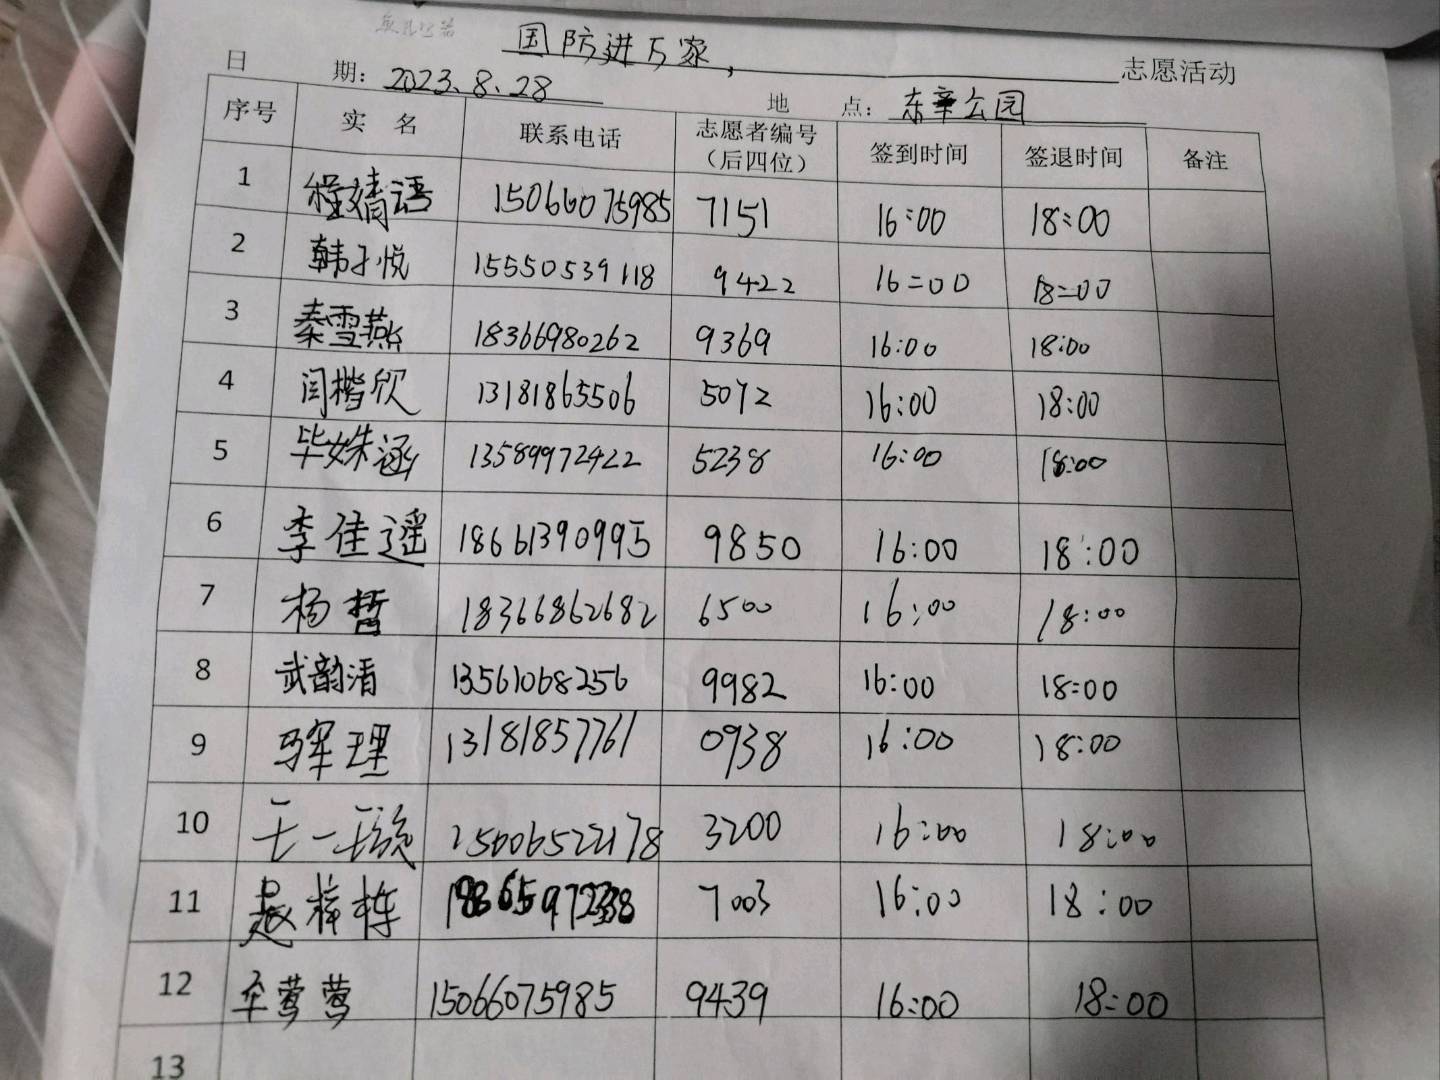 国防进万家, 志愿活动
日 期: 2023.8.28 地 点: 东辛公园
序号 实 名 联系电话 志愿者编号（后四位） 签到时间 签退时间 备注
1 程婧语 15066075985 7151 16:00 18:00
2 韩子悦 15550539118 9422 16:00 18:00
3 秦雪燕 18366980262 9369 16:00 18:00
4 闫楷欣 13181865506 5072 16:00 18:00
5 毕姝涵 13589972422 5238 16:00 18:00
6 李佳遥 18661390995 9850 16:00 18:00
7 杨哲 18366862682 6500 16:00 18:00
8 武韵清 13561068256 9982 16:00 18:00
9 骆理 13181857761 0938 16:00 18:00
10 王一 15006522178 3200 16:00 18:00
11 赵梓栋 3200 7003 16:00 18:00
12 莺莺 15066075985 9439 16:00 18:00
13